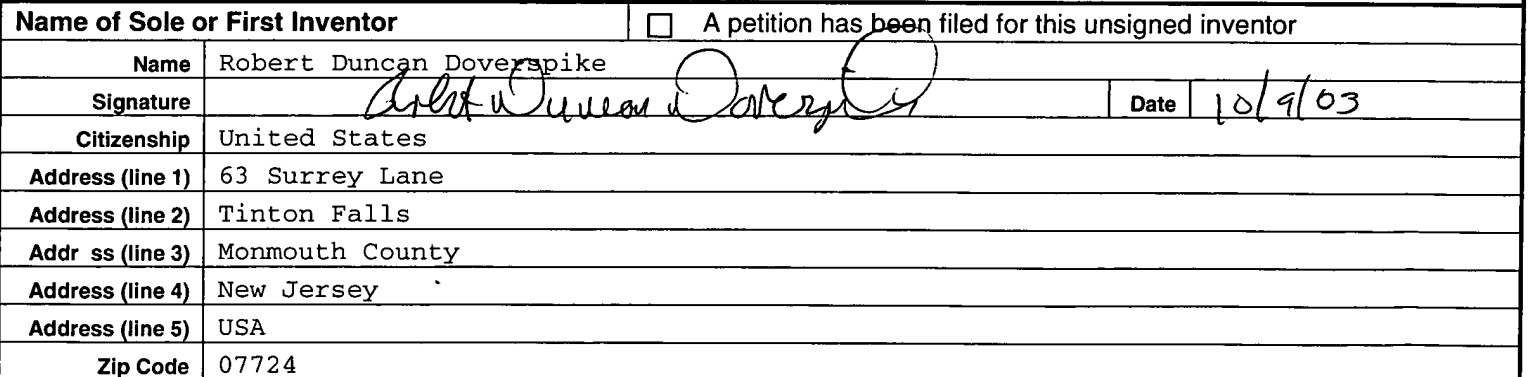 Name of Sole or First Inventor ☐ A petition has been filed for this unsigned inventor
Name Robert Duncan Doverspike
Signature Robert Duncan Doverspike Date 10/9/03
Citizenship United States
Address (line 1) 63 Surrey Lane
Address (line 2) Tinton Falls
Addr ss (line 3) Monmouth County
Address (line 4) New Jersey
Address (line 5) USA
Zip Code 07724